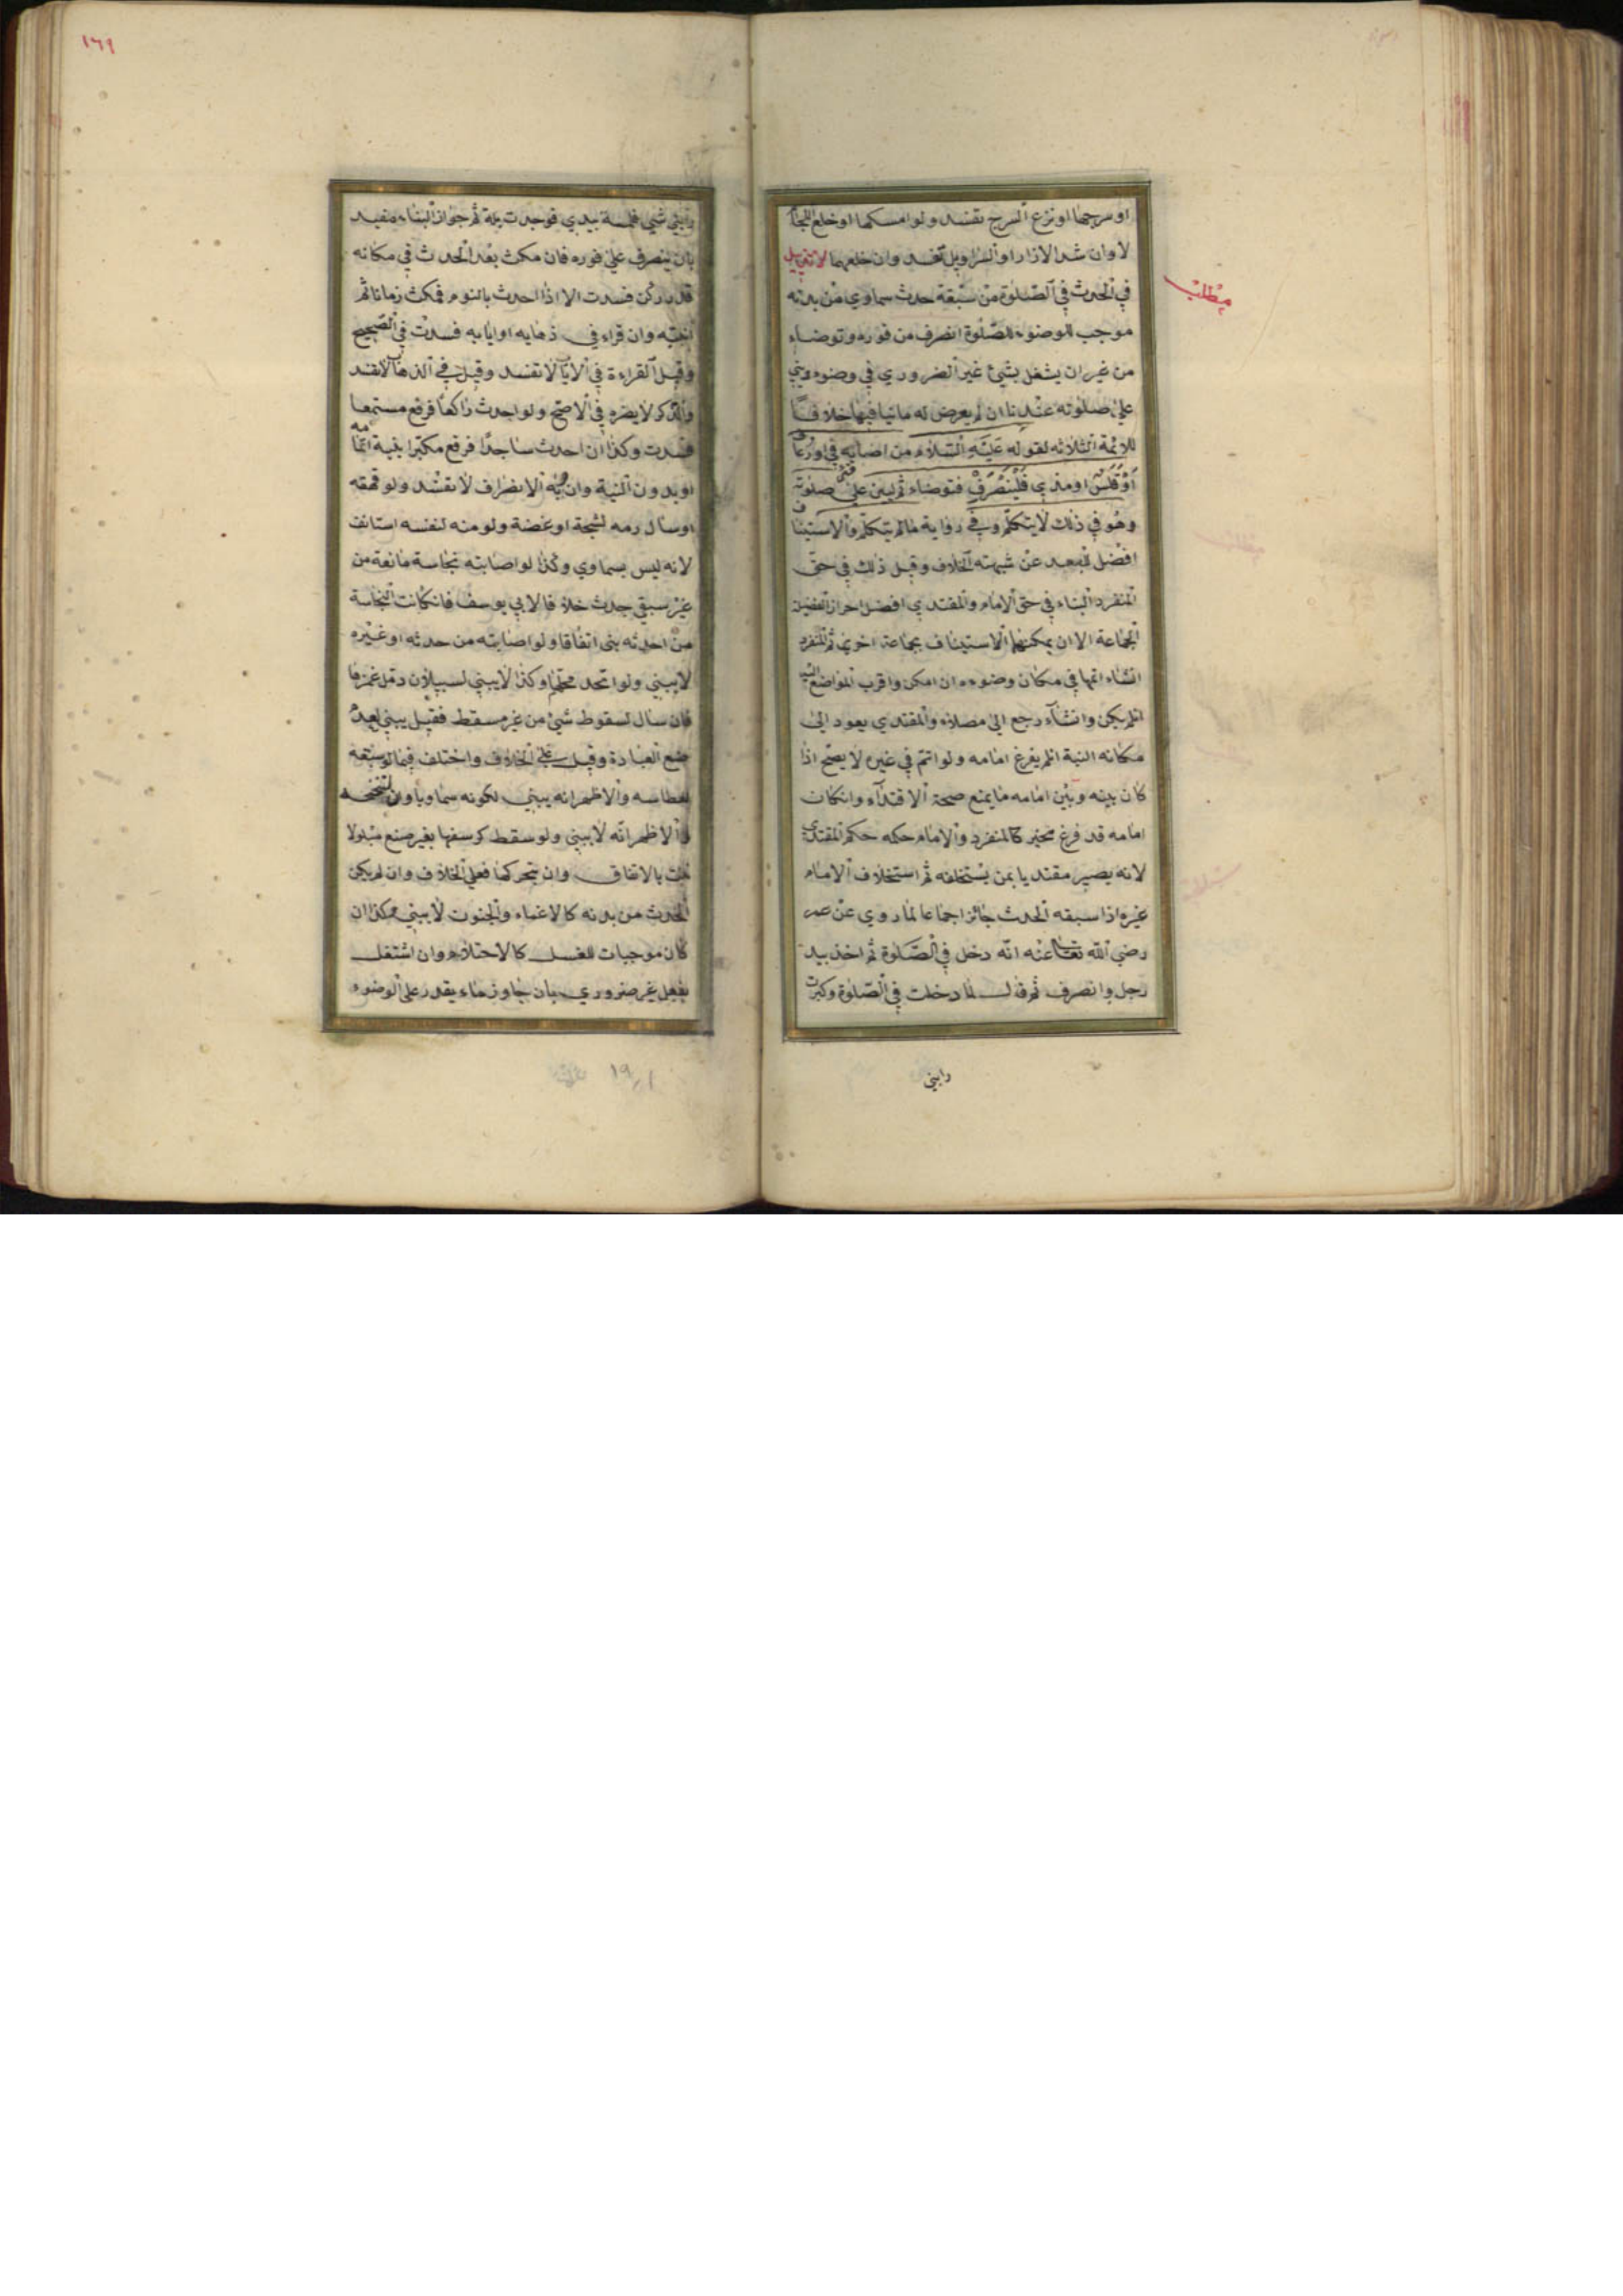 او سرجها او نزع السرج تفسد ولو امسكها او خلع اللجام
لا وان شد الازار او السراويل تفسد وان خلعهما لا تفسد
مطلب
في الحدث في الصلوة من سبقه حدث سماوي من بدنه
موجب للوضوء للصلوة انصرف من فوره وتوضاء
من غير ان يشغل بشئ غير الضروري في وضوءه ويبني
على صلوته عندنا ان لم يعرض له ما ينافيها خلافا
للائمة الثلاثه لقوله عليه السلام من اصابه قئ او رعاف
او قلس او مذي فلينصرف فتوضاء ثم ليبن على صلوته
وهو في ذلك لا يتكلم وفي رواية مالم يتكلم والاستيناف
افضل للبعد عن شبهته الخلاف وقيل ذلك في حق
المنفرد البناء في حق الامام والمقتدي افضل احراز الفضيلة
الجماعة الا ان يمكنهما الاستيناف بجماعة اخرى ثم المنفرد
انشاء اتمها في مكان وضوءه ان امكن واقرب المواضع اليه
انلم يكن وانشاء رجع الى مصلاه والمقتدي يعود الى
مكانه البتة انلم يفرغ امامه ولو اتم في غيره لا يصح اذا
كان بينه وبين امامه ما يمنع صحة الاقتداء وانكان
امامه قد فرغ مخير كالمنفرد والامام حكمه حكم المقتدي
لانه يصير مقتديا بمن يستخلفه ثم استخلاف الامام
غيره اذا سبقه الحدث جائز اجماعا لما روي عن عمر
رضي الله تعالى عنه انه دخل في الصلوة ثم اخذ بيد
رجل وانصرف ثم قال لما دخلت في الصلوة وكبرت
رابني
١٦٩
رابني شئ فلمسة بيدي فوجدت بلة ثم جواز البناء مقيد
بان ينصرف على فوره فان مكث بعد الحدث في مكانه
قدر ركن فسدت الا اذا احدث بالنوم فمكث زمانا ثم
انتبه وان قراء في ذهابه او ايابه فسدت في الصحيح
وقيل القراءة في الاياب لا تفسد وقيل في الذهاب لا تفسد
والذكر لا يضره في الاصح ولو احدث راكعا فرفع مستمعا
فسدت وكذا ان احدث ساجدا فرفع مكبرا بنية اتمامه
او بدون النية وان بنية الانصراف لا تفسد ولو قهقه
او سال دمه لشجة او عضة ولو منه لنفسه استانف
لانه ليس بسماوي وكذا لو اصابته نجاسة مانعة من
غير سبق حدث خلافا لابي يوسف فانكانت النجاسة
من احدثه بنى اتفاقا ولو اصابته من حدثه او غيره
لا يبني ولو اتحد محلهما وكذا لا يبني لسيلان دمل غمزها
فان سال لسقوط شئ من غير مسقط فقيل يبني لعدم
صنع العبادة وقيل على الخلاف واختلف فيما لو سبقه
لعطاسه والاظهر انه يبني لكونه سماويا وان تنحنحه
والاظهر انه لا يبني ولو سقط كرسفها بغير صنع مبلولا
بنت بالاتفاق وان بتحركها فعلى الخلاف وان لم يكن
الحدث من بدنه كالاغماء والجنون لا يبني وكذا ان
كان موجبات للغسل كالاحتلام وان اشتغل
بفعل غير ضروري بان جاوز ماء يقدر على الوضوء